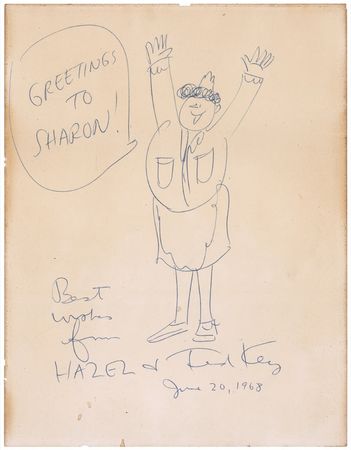 GREETINGS
TO
SHARON!
Best
wishes
from
HAZEL & Ted Key
June 20, 1968